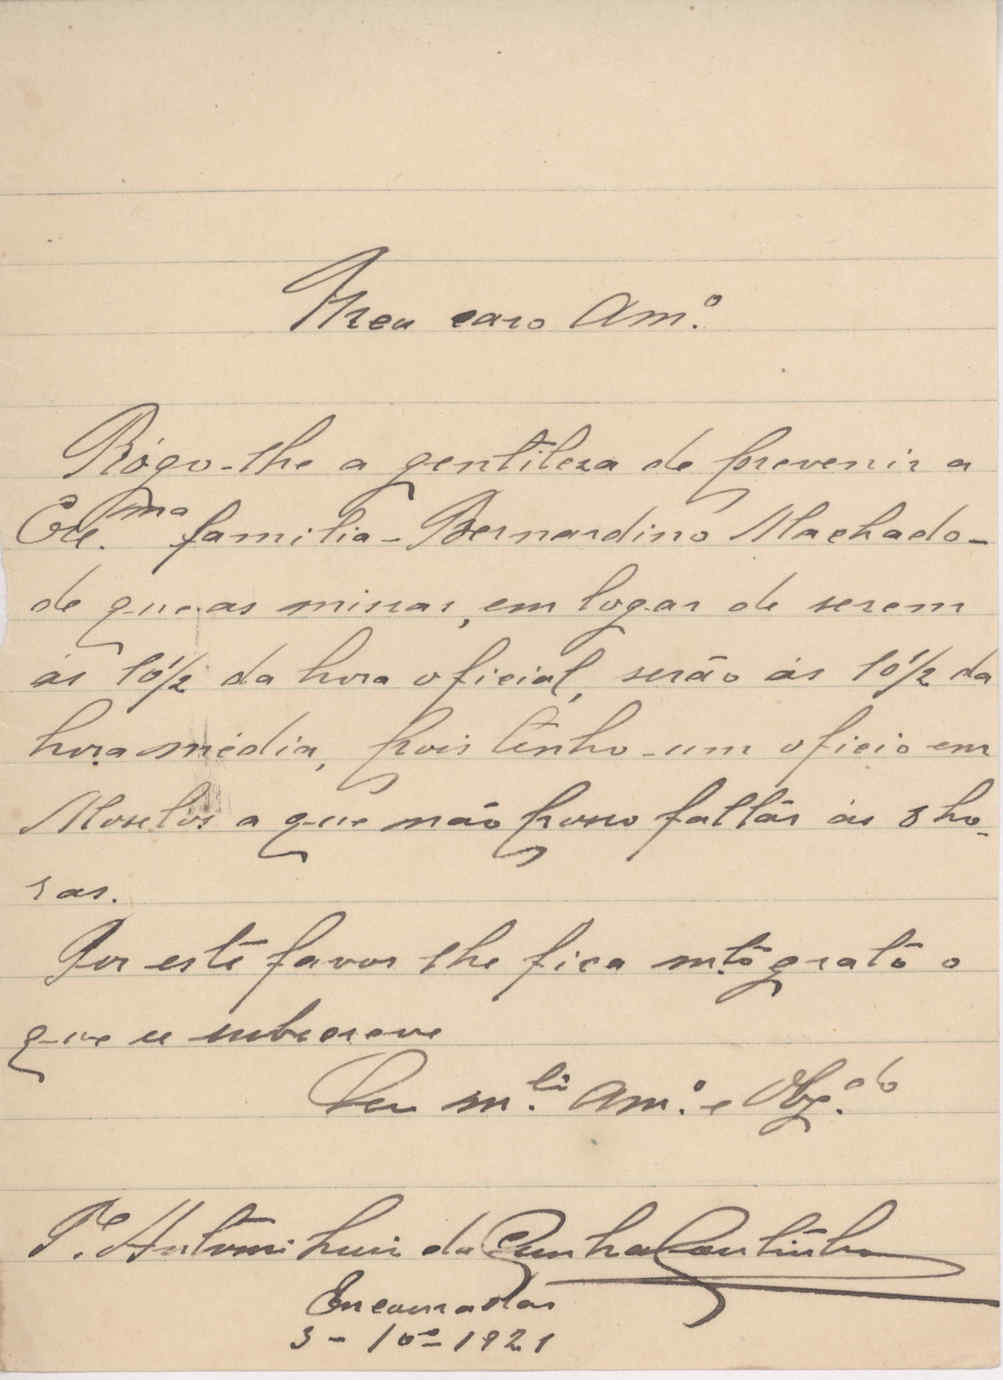 Meu caro Am.º
Rógo-lhe a gentileza de prevenir a
Exc.ma familia - Bernardino Machado -
de que as missas, em logar de serem
ás 10 1/2 da hora oficial, serão ás 10 1/2 da
hora média, pois tenho um oficio em
Moselos a que não posso faltar ás 8 ho-
ras.
Por este favor lhe fica mtº grato o
que se subscreve
Seu m.to Am.º e Obg.do
P.e Antonio Luis da Cunha Coutinho
Encouradas
3 - 10º - 1921